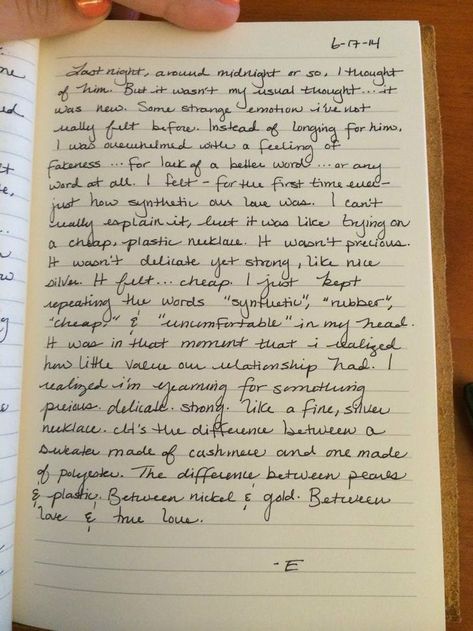 6-17-14
Last night, around midnight or so, I thought
of him. But it wasn't my usual thought... it
was new. Some strange emotion i've not
really felt before. Instead of longing for him,
I was overwhelmed with a feeling of
fakeness... for lack of a better word... or any
word at all. I felt - for the first time ever -
just how synthetic our love was. I can't
really explain it, but it was like trying on
a cheap, plastic necklace. It wasn't precious.
It wasn't delicate yet strong, like nice
silver. It felt... cheap. I just kept
repeating the words "synthetic", "rubber",
"cheap," & "uncomfortable" in my head.
It was in that moment that i realized
how little value our relationship had. I
realized i'm yearning for something
precious. delicate. strong. like a fine, silver
necklace. It's the difference between a
sweater made of cashmere and one made
of polyester. The difference between pearls
& plastic. Between nickel & gold. Between
love & true love.
-E